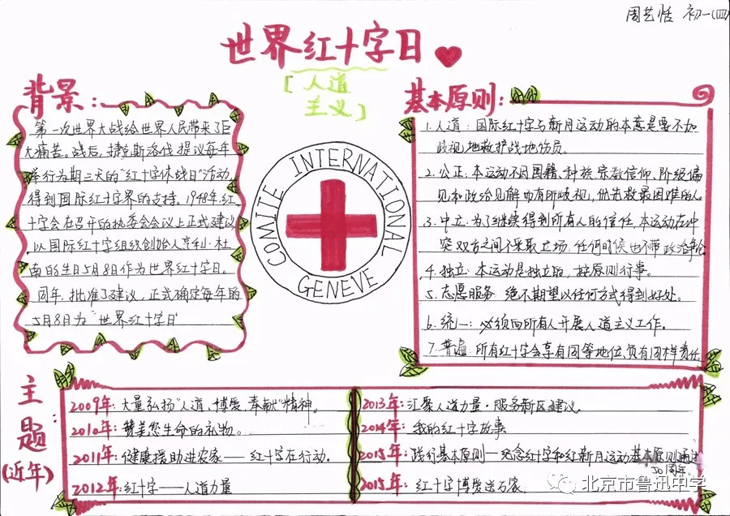 周艺恬 初一(四)
世界红十字日
[人道
主义]
背景:
第一次世界大战给世界人民带来了巨
大痛苦。战后,捷克斯洛伐提议每年
举行为期三天的"红十字休战日"活动,
得到国际红十字界的支持。1948年,红
十字会在召开的执委会会议上正式建议
以国际红十字组织创始人亨利·杜
南的生日5月8日作为世界红十字日。
同年,批准了建议,正式确定每年的
5月8日为"世界红十字日
COMITE INTERNATIONAL
GENEVE
基本原则:
1.人道:国际红十字与新月运动的本意是要不加
歧视地救护战地伤员。
2.公正:本运动不因国籍、种族、宗教信仰、阶级偏
见和政治见解而有所歧视,优先救最困难的人
3.中立:为了继续得到所有人的信任,本运动在冲
突双方之间不采取立场,任何时候也不带政治争论
4.独立:本运动是独立的,按原则行事。
5.志愿服务:绝不期望以任何方式得到好处。
6.统一:必须向所有人开展人道主义工作。
7.普遍:所有红十字会享有同等地位,负有同样责任
主题
(近年)
2009年:大量弘扬"人道、博爱、奉献"精神。
2010年:赞美您生命的礼物。
2011年:健康援助进农家——红十字在行动。
2012年:红十字——人道力量
2013年:汇聚人道力量·服务新区建设
2014年:我的红十字故事
2015年:践行基本原则—纪念红十字和红新月运动基本原则通过
50周年
2015年:红十字博爱送万家。
北京市鲁迅中学